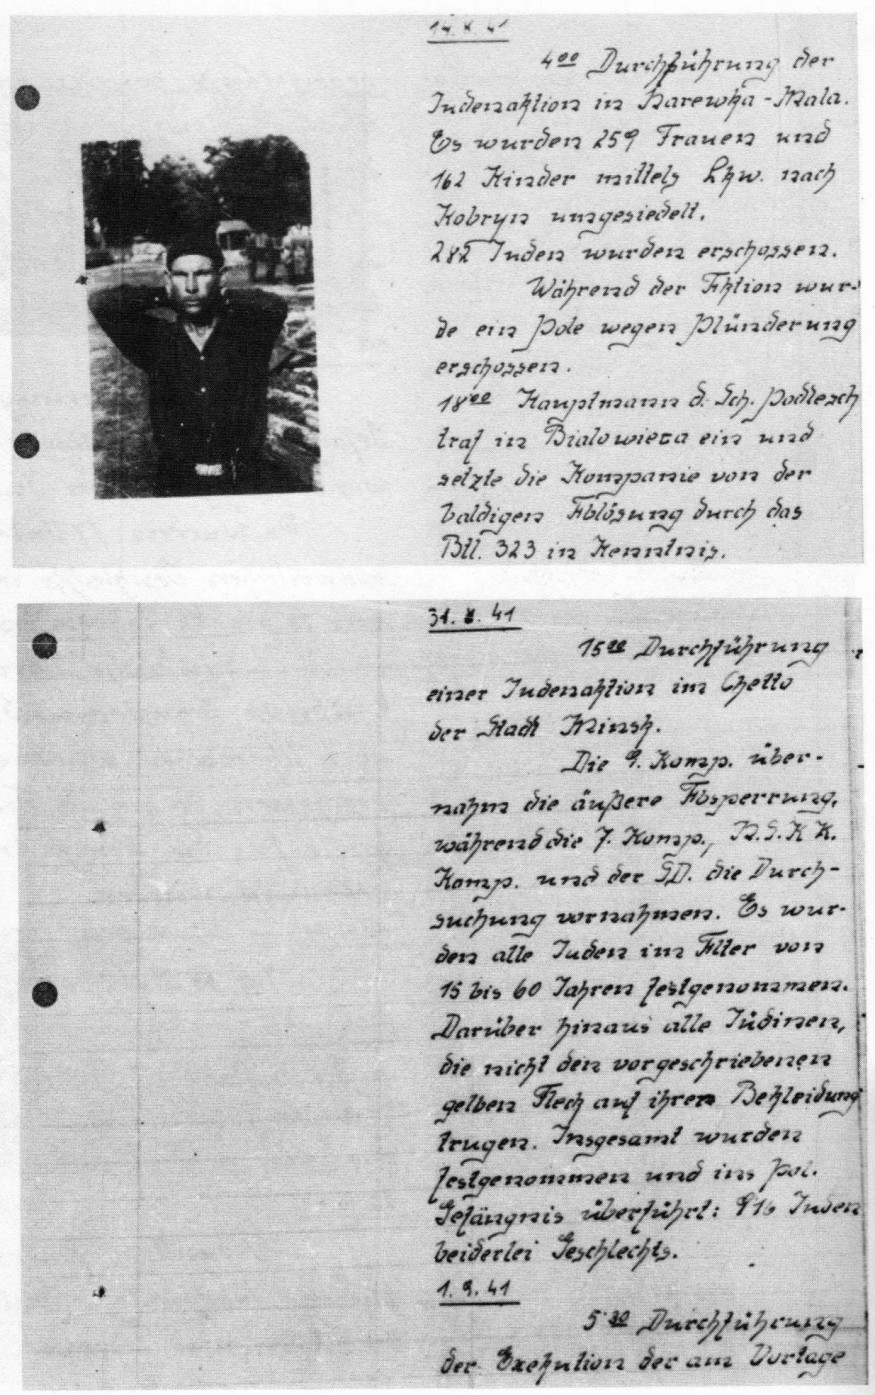 14. 8. 41
4⁰⁰ Durchführung der
Judenaktion in Narewka-Mala.
Es wurden 259 Frauen und
162 Kinder mittels Lkw. nach
Kobryn umgesiedelt.
282 Juden wurden erschossen.
Während der Aktion wur-
de ein Pole wegen Plünderung
erschossen.
18⁰⁰ Hauptmann d. Sch. Podlesch
traf in Bialowieza ein und
setzte die Kompanie von der
baldigen Ablösung durch das
Btl. 323 in Kenntnis.
31. 8. 41
15⁰⁰ Durchführung
einer Judenaktion im Ghetto
der Stadt Minsk.
Die 9. Komp. über-
nahm die äußere Absperrung,
während die 7. Komp., N.S.K.K.
Komp. und der SD. die Durch-
suchung vornahmen. Es wur-
den alle Juden im Alter von
15 bis 60 Jahren festgenommen.
Darüber hinaus alle Jüdinen,
die nicht den vorgeschriebenen
gelben Fleck auf ihrer Bekleidung
trugen. Insgesamt wurden
festgenommen und ins Pol.
Gefängnis überführt: 916 Juden
beiderlei Geschlechts.
1. 9. 41
Durchführung
der Exekution der am Vortage